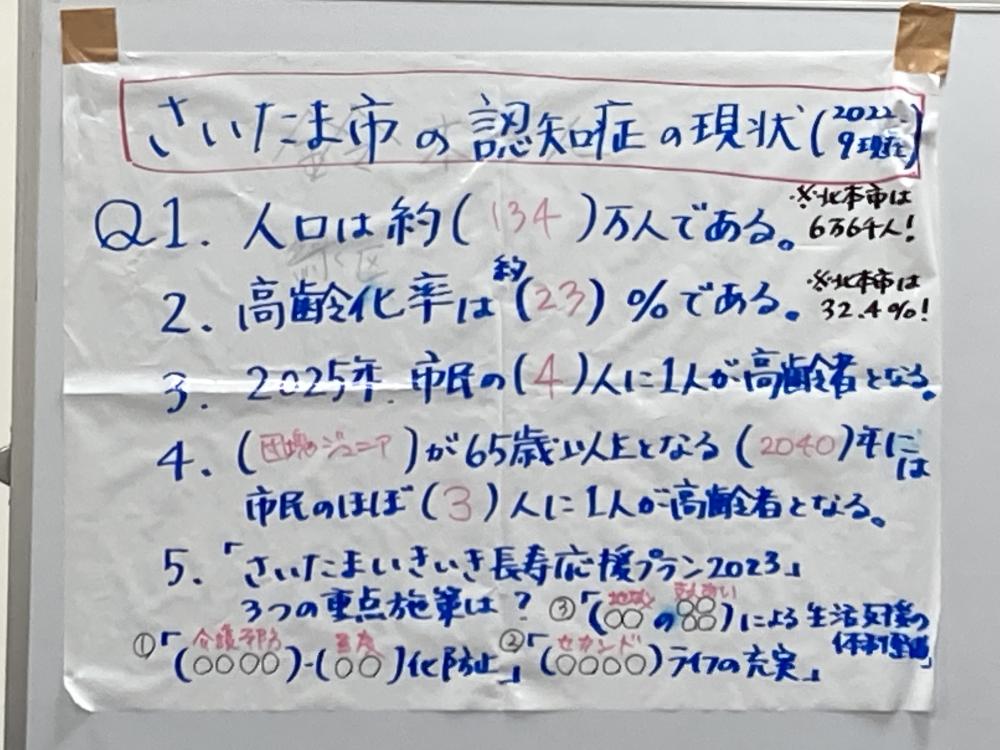 さいたま市の認知症の現状(2022.9現在)
Q1. 人口は約(134)万人である。
※北本市は
6万64人!
2. 高齢化率は約(23)%である。
※北本市は
32.4%!
3. 2025年.市民の(4)人に1人が高齢者となる。
4. (団塊ジュニア)が65歳以上となる(2040)年には
市民のほぼ(3)人に1人が高齢者となる。
5. 「さいたまいきいき長寿応援プラン2023」
3つの重点施策は?
①「(介護予防 ○○○○)-(重度 ○○)化防止」
②「(セカンド ○○○○)ライフの充実」
③「(地域 ○○の支え合い ○○○○)による生活支援の
体制整備」